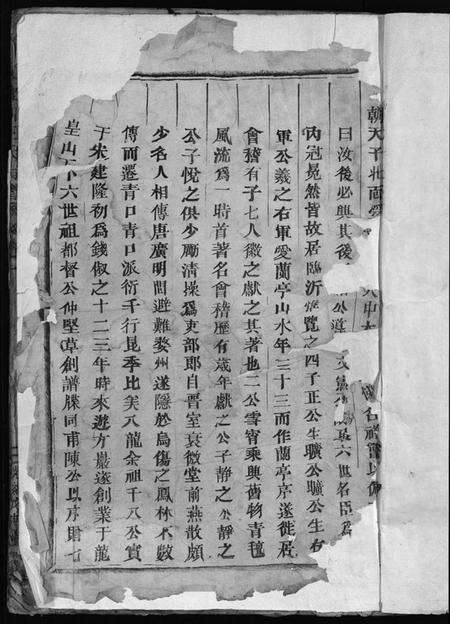 朝天子壯面
曰汝後必興其後 六世名臣
內冠冕然皆故居臨沂 覽之四子正公生曠公曠公生右
軍公羲之右軍愛蘭亭山水年三十三而作蘭亭序遂徙居
會稽有子七人徽之獻之其著也二公雪宵乘興舊物青氊
風流爲一時首著名會稽歷有歲年獻之公子靜之公靜之
公子悅之俱少勵清操爲吏部郎自晉室衰微堂前燕散頗
少名人相傳唐廣明間避難婺州遂隱於烏傷之鳳林不數
傳而遷青口青口派衍千行昆季比美八龍余祖千八公實
于宋建隆初爲錢俶之十二三年時來遊方巖遂創業于龍
皇山下六世祖都督公仲堅草創譜牒同甫陳公以序則七